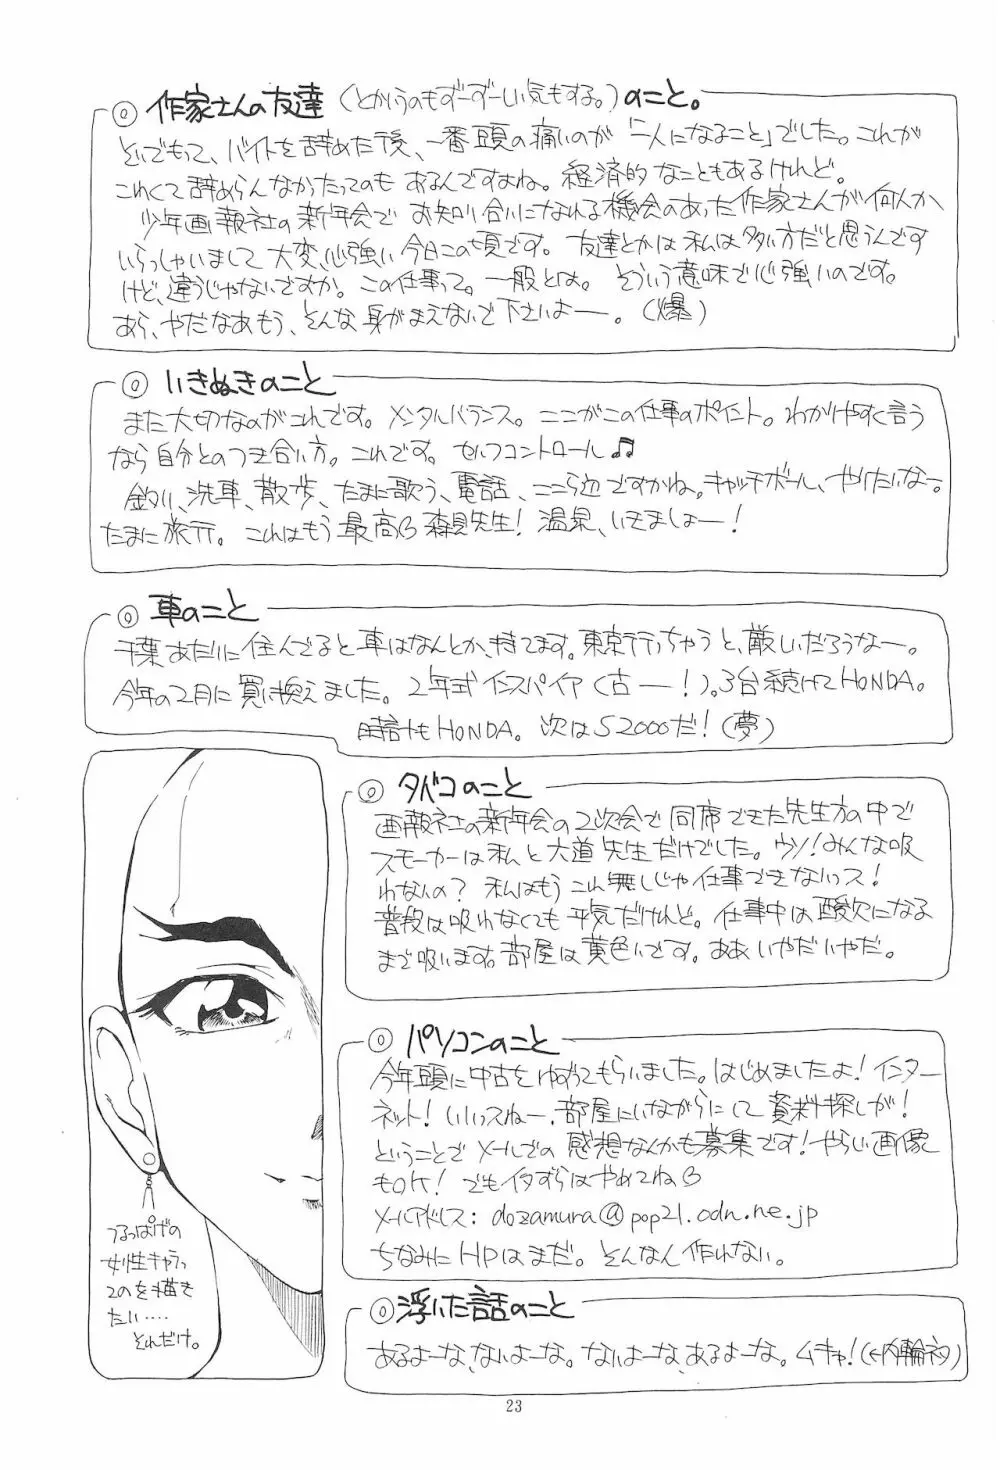 ◎ 作家さんの友達（とかいうのもずーずーしい気もする。）のこと。
そいでもって、バイトを辞めた後、一番頭の痛いのが「一人になること」でした。これが
これくて辞めらんなかったってのもあるんですよね。経済的なこともあるけれど。
少年画報社の新年会でお知り合いになれる機会のあった作家さんが何人か
いらっしゃいまして大変心強い今日この頃です。友達とかは私は多い方だと思うんです
けど、違うじゃないですか。この仕事って。一般とは。そういう意味で心強いのです。
あら、やだなあもう、そんな身がまえないで下さいよー。（爆）
◎ いきぬきのこと
また大切なのがこれです。メンタルバランス。ここがこの仕事のポイント。わかりやすく言う
なら自分とのつき合い方。これです。セルフコントロール♫
釣り、洗車、散歩、たまに歌う、電話、ここら辺ですかね。キャッチボール、やりたいなー。
たまに旅行。これはもう最高 森見先生！温泉、いきましょー！
◎ 車のこと
千葉あたりに住んでると車はなんとか、持てます。東京行っちゃうと、厳しいだろうなー。
今年の2月に買い換えました。2年式インスパイア（古ー！）。3台続けてHONDA。
時計もHONDA。次はS2000だ！（夢）
◎ タバコのこと
画報社の新年会の2次会で同席できた先生方の中で
スモーカーは私と大道先生だけでした。ウソ！みんな吸
わないの？私はもうコレ無しじゃ仕事できないっス！
普段は吸わなくても平気だけれど。仕事中は酸欠になる
まで吸います。部屋は黄色いです。ああいやだいやだ。
◎ パソコンのこと
今年頭に中古をゆずってもらいました。はじめましたよ！インター
ネット！いいっスねー、部屋にいながらにして資料探しが！
ということでメールでの感想なんかも募集です！やらしい画像
もOK！でもイタずらはやめてね
メールアドレス：dozamura@pop21.odn.ne.jp
ちなみにHPはまだ。そんなん作れない。
つるっぱげの
女性キャラっ
てのを描き
たい……
それだけ。
◎ 浮いた話のこと
あるよーな、ないよーな。ないよーな、あるよーな。ムキャ！（←内輪ネタ）
23